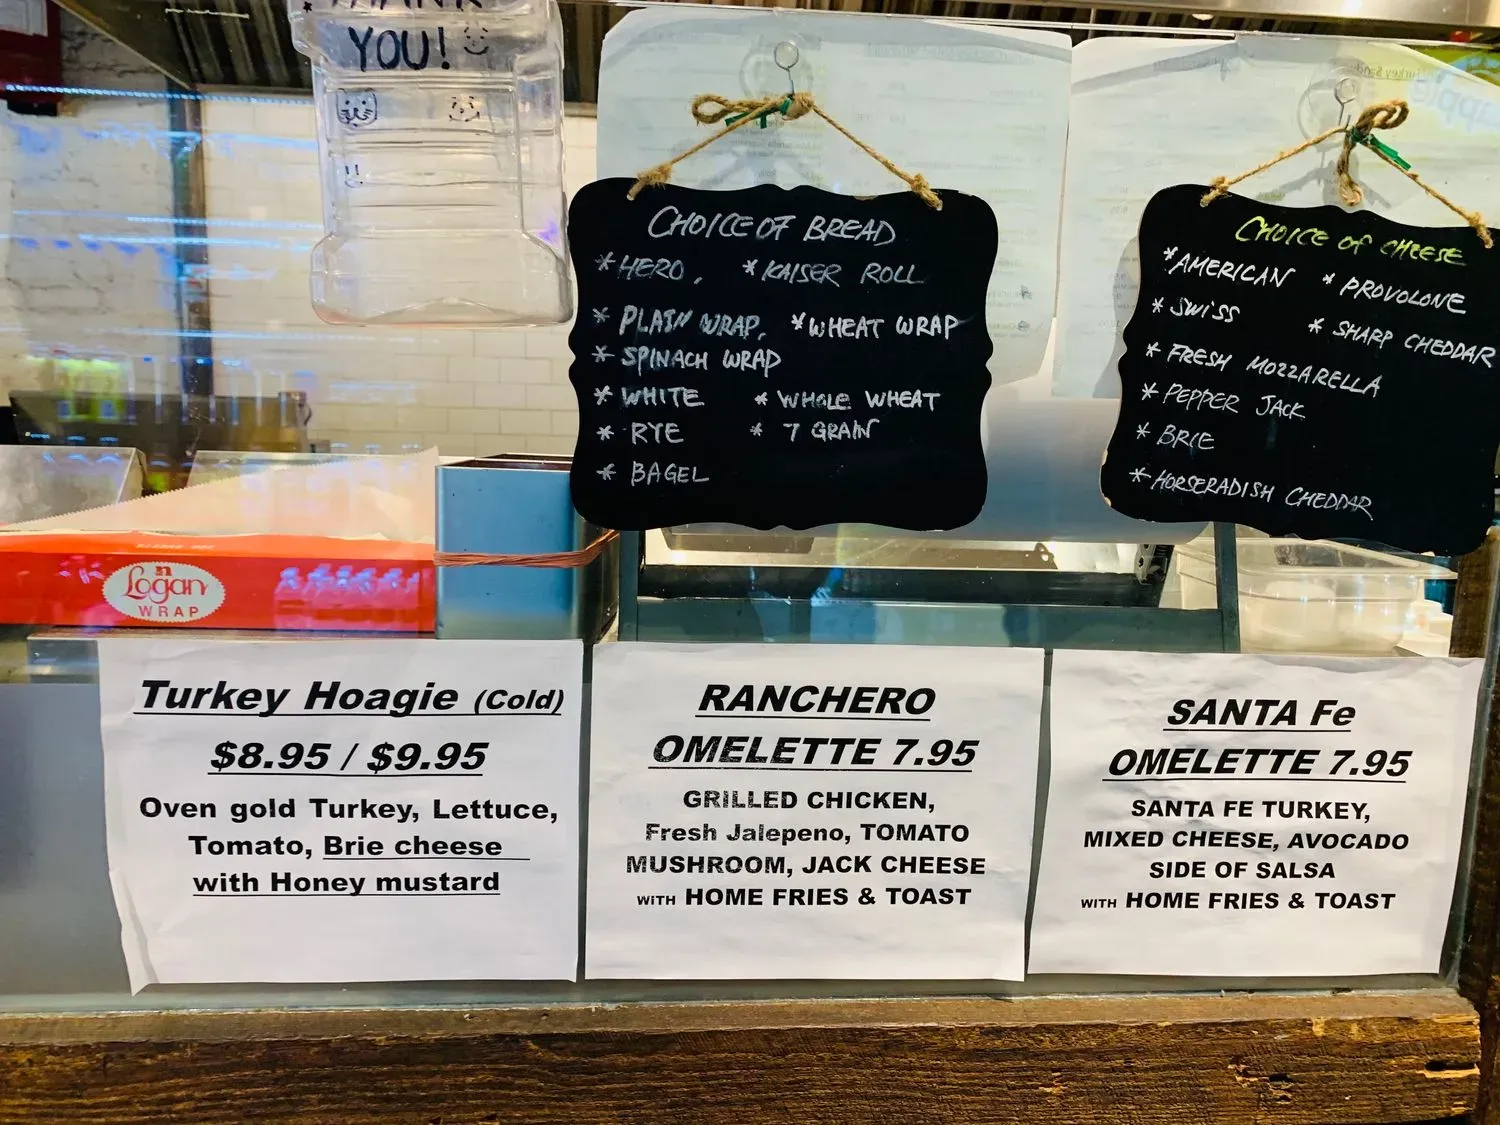 THANK
YOU!
CHOICE OF BREAD
* HERO, * KAISER ROLL
* PLAIN WRAP, * WHEAT WRAP
* SPINACH WRAP
* WHITE * WHOLE WHEAT
* RYE * 7 GRAIN
* BAGEL
CHOICE OF CHEESE
* AMERICAN * PROVOLONE
* SWISS * SHARP CHEDDAR
* FRESH MOZZARELLA
* PEPPER JACK
* BRIE
* HORSERADISH CHEDDAR
n
Logan
WRAP
Turkey Hoagie (Cold)
$8.95 / $9.95
Oven gold Turkey, Lettuce,
Tomato, Brie cheese
with Honey mustard
RANCHERO
OMELETTE 7.95
GRILLED CHICKEN,
Fresh Jalepeno, TOMATO
MUSHROOM, JACK CHEESE
WITH HOME FRIES & TOAST
SANTA Fe
OMELETTE 7.95
SANTA FE TURKEY,
MIXED CHEESE, AVOCADO
SIDE OF SALSA
WITH HOME FRIES & TOAST